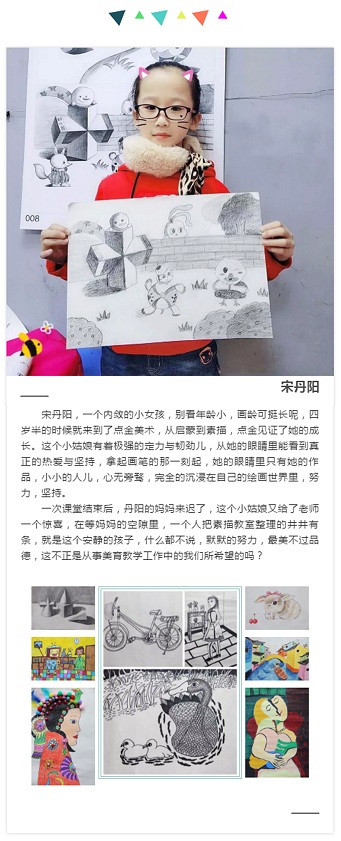 008
宋丹阳
宋丹阳，一个内敛的小女孩，别看年龄小，画龄可挺长呢，四
岁半的时候就来到了点金美术，从启蒙到素描，点金见证了她的成
长。这个小姑娘有着极强的定力与韧劲儿，从她的眼睛里能看到真
正的热爱与坚持，拿起画笔的那一刻起，她的眼睛里只有她的作
品，小小的人儿，心无旁骛，完全的沉浸在自己的绘画世界里，努
力，坚持。
一次课堂结束后，丹阳的妈妈来迟了，这个小姑娘又给了老师
一个惊喜，在等妈妈的空隙里，一个人把素描教室整理的井井有
条，就是这个安静的孩子，什么都不说，默默的努力，最美不过品
德，这不正是从事美育教学工作中的我们所希望的吗？